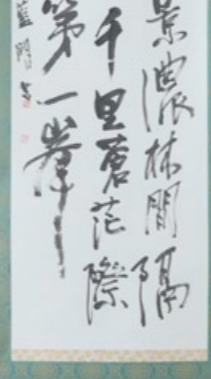 景濃林間隔
千里蒼茫際
第一峯